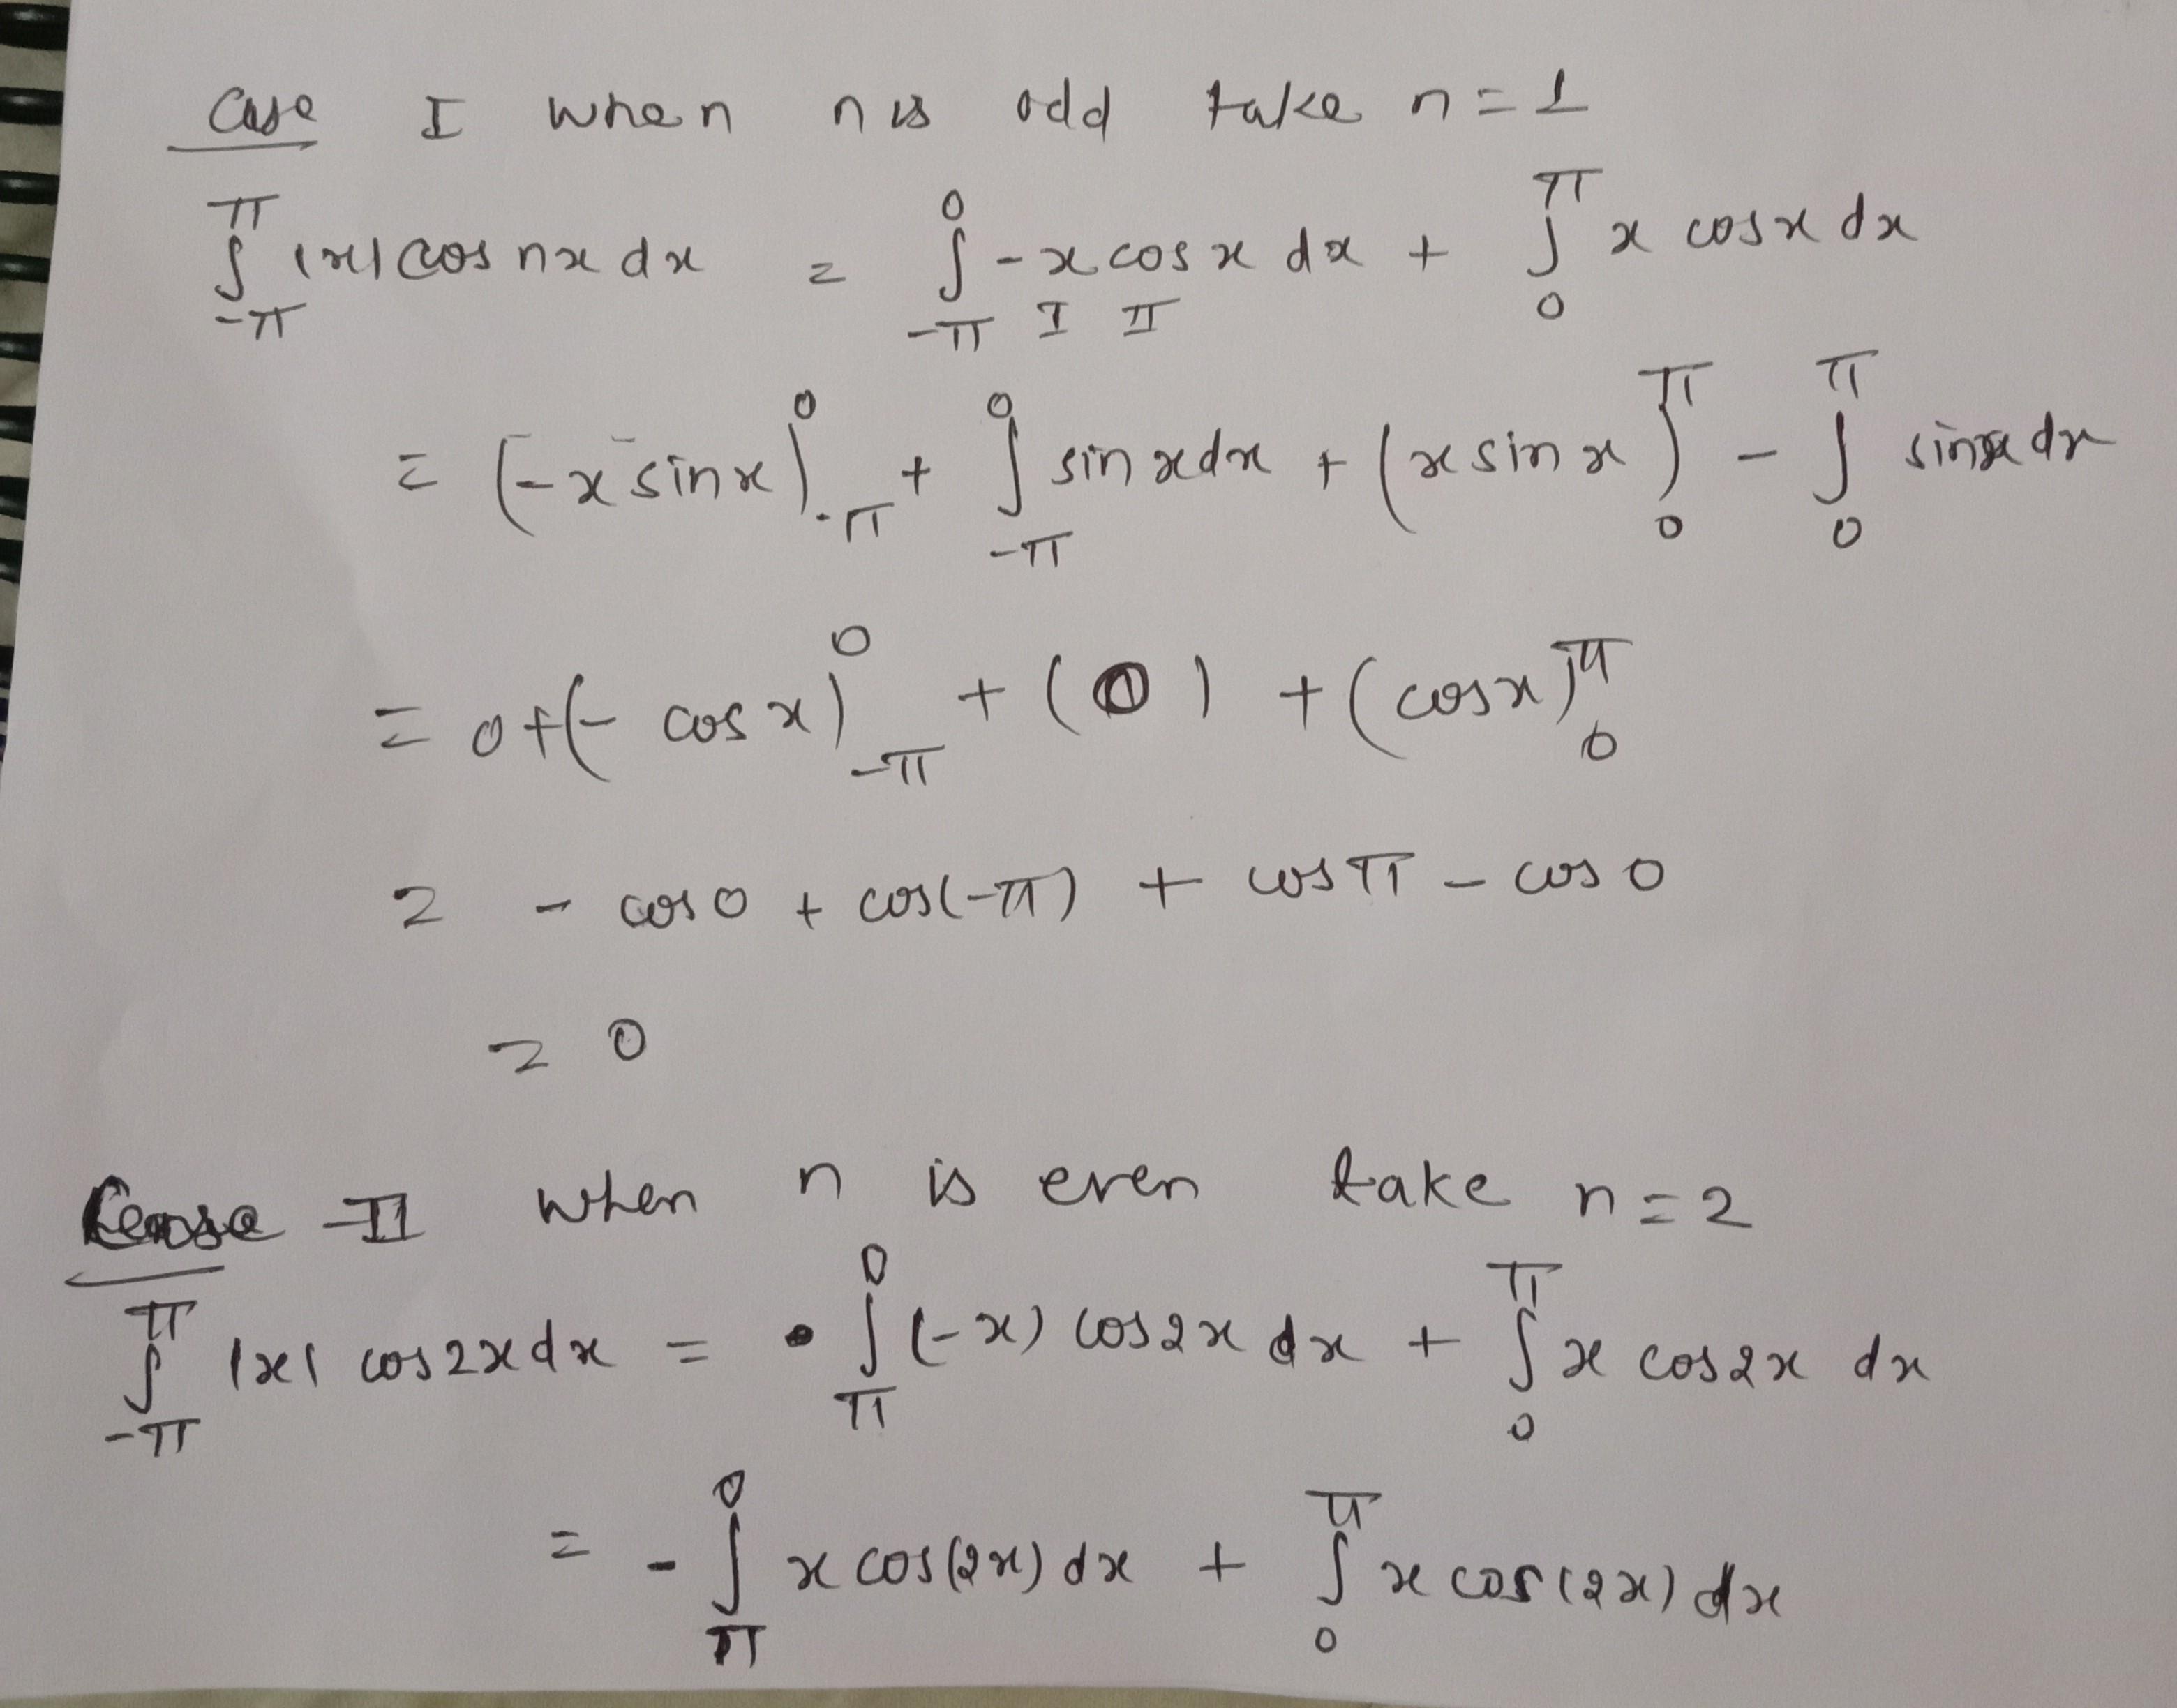 Case I when n is odd take n = 1
∫_{-π}^{π} |x| cos nx dx = ∫_{-π}^{0} -x cos x dx + ∫_{0}^{π} x cos x dx
I II
= (-x sin x)_{-π}^{0} + ∫_{-π}^{0} sin x dx + (x sin x)_{0}^{π} - ∫_{0}^{π} sin x dx
= 0 + (- cos x)_{-π}^{0} + (0) + (cos x)_{0}^{π}
= - cos 0 + cos(-π) + cos π - cos 0
= 0
Case - II when n is even take n = 2
∫_{-π}^{π} |x| cos 2x dx = ∫_{π}^{0} (-x) cos 2x dx + ∫_{0}^{π} x cos 2x dx
= - ∫_{π}^{0} x cos(2x) dx + ∫_{0}^{π} x cos(2x) dx